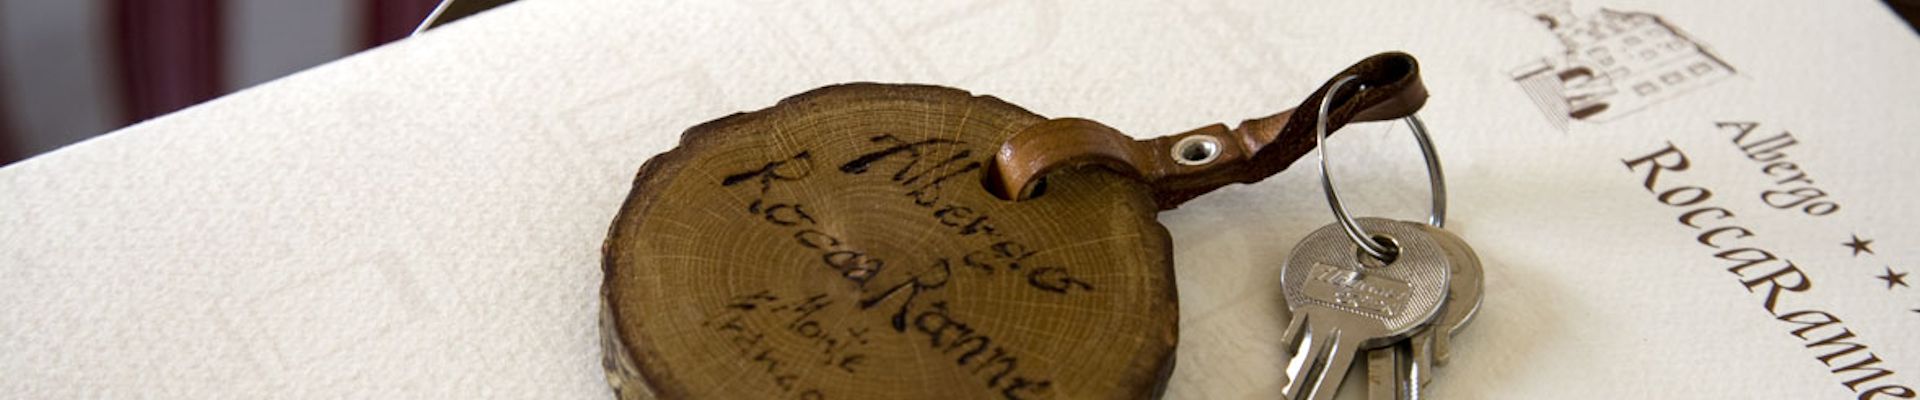 Albergo
RoccaRanne
Albergo
RoccaRanne